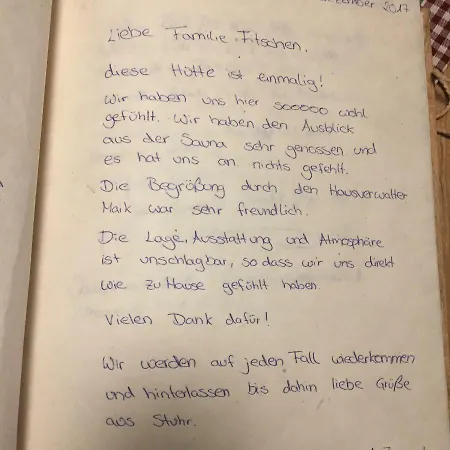 2017
Liebe Familie Fitschen,
diese Hütte ist einmalig!
Wir haben uns hier sooooo wohl
gefühlt. Wir haben den Ausblick
aus der Sauna sehr genossen und
es hat uns an nichts gefehlt.
Die Begrüßung durch den Hausverwalter
Maik war sehr freundlich.
Die Lage, Ausstattung und Atmosphäre
ist unschlagbar, so dass wir uns direkt
wie zu Hause gefühlt haben.
Vielen Dank dafür!
Wir werden auf jeden Fall wiederkommen
und hinterlassen bis dahin liebe Grüße
aus Stuhr.